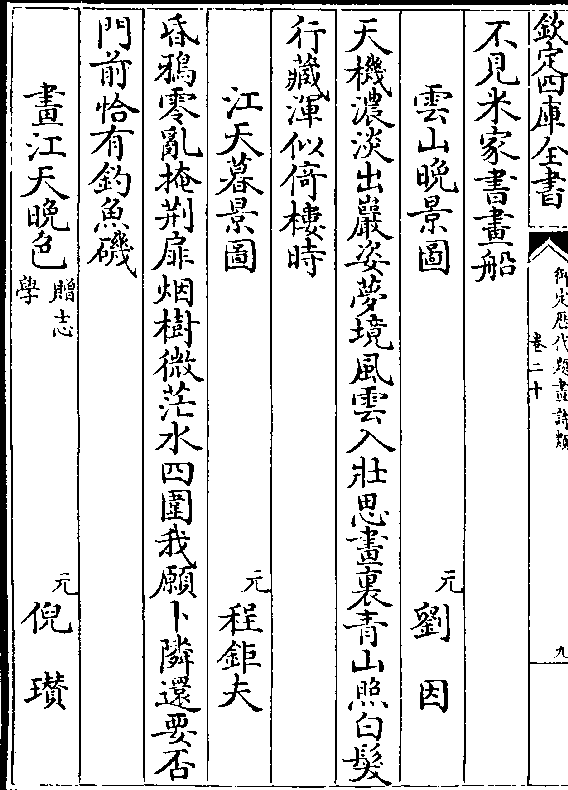 欽定四庫全書
御定歷代題畫詩類
卷二十
九
不見米家書畫船
雲山晚景圖 元 劉因
天機濃淡出巖姿夢境風雲入壯思畫裏青山照白髮
行藏渾似倚樓時
江天暮景圖 元 程鉅夫
昏鴉零亂掩荆扉烟樹微茫水四圍我願卜隣還要否
門前恰有釣魚磯
畫江天晚色 贈志學 元 倪瓚